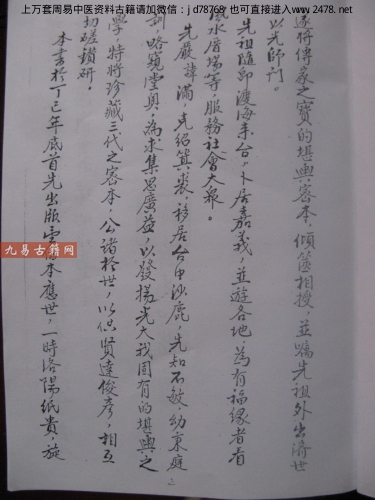 上万套周易中医资料古籍请加微信：jd78763 也可直接进入www.2478.net
遂將傳家之寶的堪輿密本，傾篋相授，並囑先祖外出濟世
以光師門。
先祖隨即渡海來台，卜居嘉義，並遊各地，為有福緣者看
風水厝塲等，服務社會大眾。
先嚴諱滿，克紹箕裘，移居台中沙鹿，先知不敏，幼秉庭
訓，略窺堂奧，為求集思廣益，以發揚光大我固有的堪輿之
學，特將珍藏三代之密本，公諸於世，以供賢達俊彥，相互
切磋鑽研。
本書於丁巳年底首先出版 本應世，一時洛陽紙貴，旋
2
九易古籍网